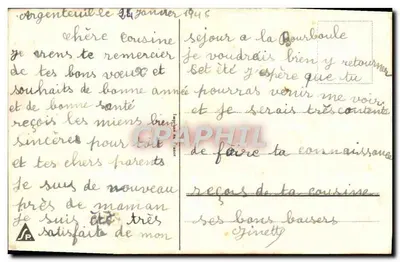 Argenteuil le 24 janvier 194
chère cousine
je viens te remercier
de tes bons vœux et
souhaits de bonne année
et de bonne santé
reçois les miens bien
sincères pour toi
et tes chers parents
Je suis de nouveau
près de maman
Je suis été très
satisfaite de mon
séjour a la Bourboule
Je voudrais bien y retourner
Cet été j'espère que tu
pourras venir me voir
et je serais très contente
de faire ta connaissance
reçois de ta cousine
ses bons baisers
Ginette